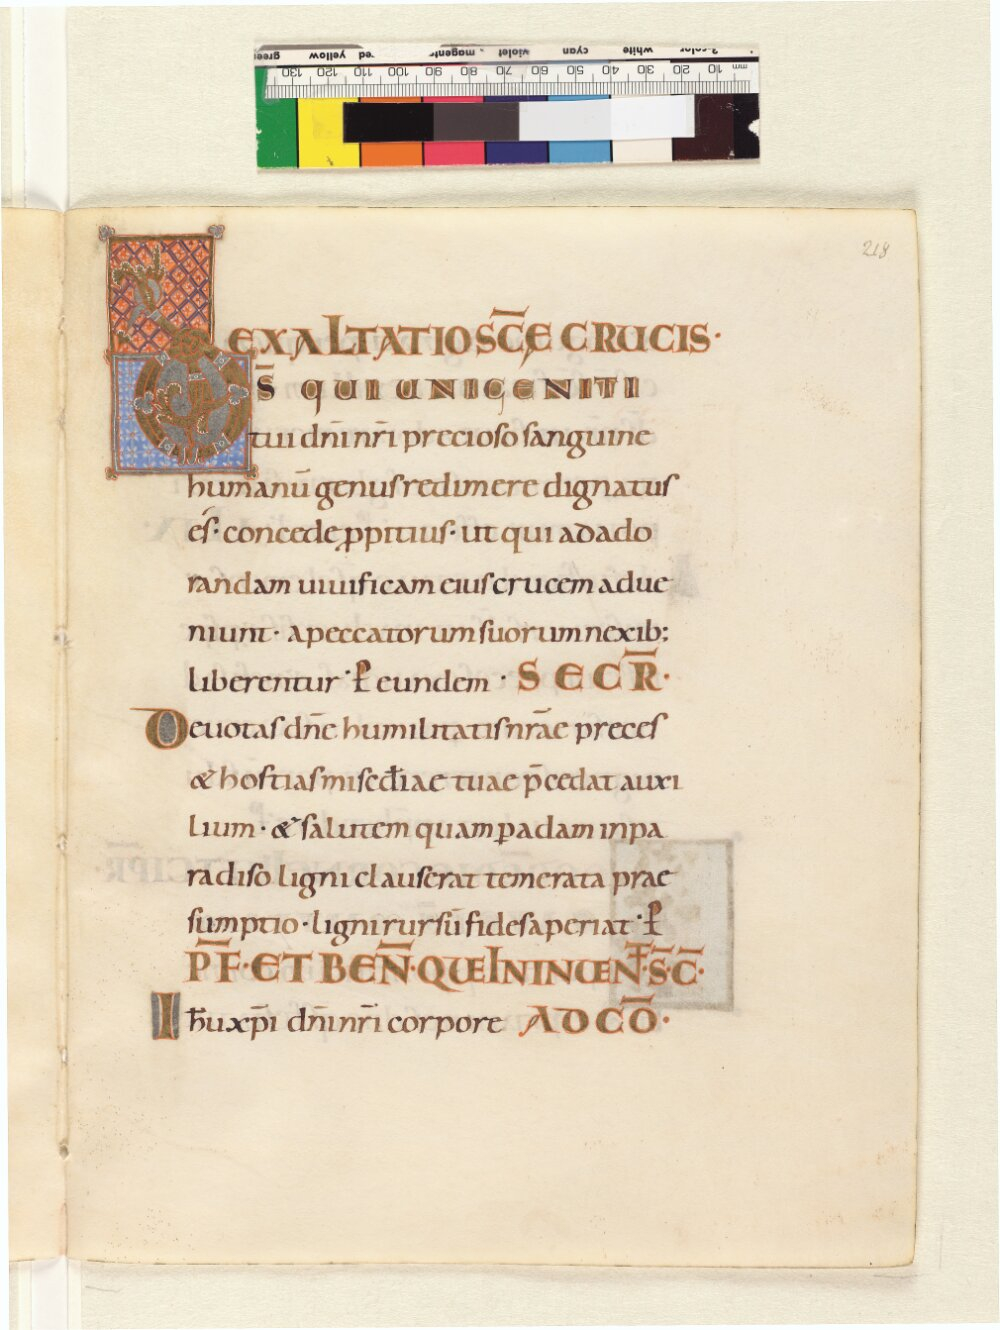 218
EXALTATIO SC̄E CRUCIS·
DS̄ QUI UNIGENITI
tui dn̄i nr̄i precioso sanguine
humanū genus redimere dignatus
és· concede ꝓpitius· ut qui ad ado
randam uiuificam eius crucem adue
niunt· a peccatorum suorum nexib;
liberentur· ꝑ eundem· SECR̄·
Deuotas dn̄e humilitatis nrāe preces
& hostias misc̄d̄iae tuae p̄cedat auxi
lium· & salutem quam ꝑ adam in pa
radiso ligni clauserat temerata prae
sumptio· ligni rursū fides aperiat· ꝑ
PF̄·ET BEN̄·QUE IN INUEN̄T·S·C̄·
Ih̄u xp̄i dn̄i nr̄i corpore AD CŌ·